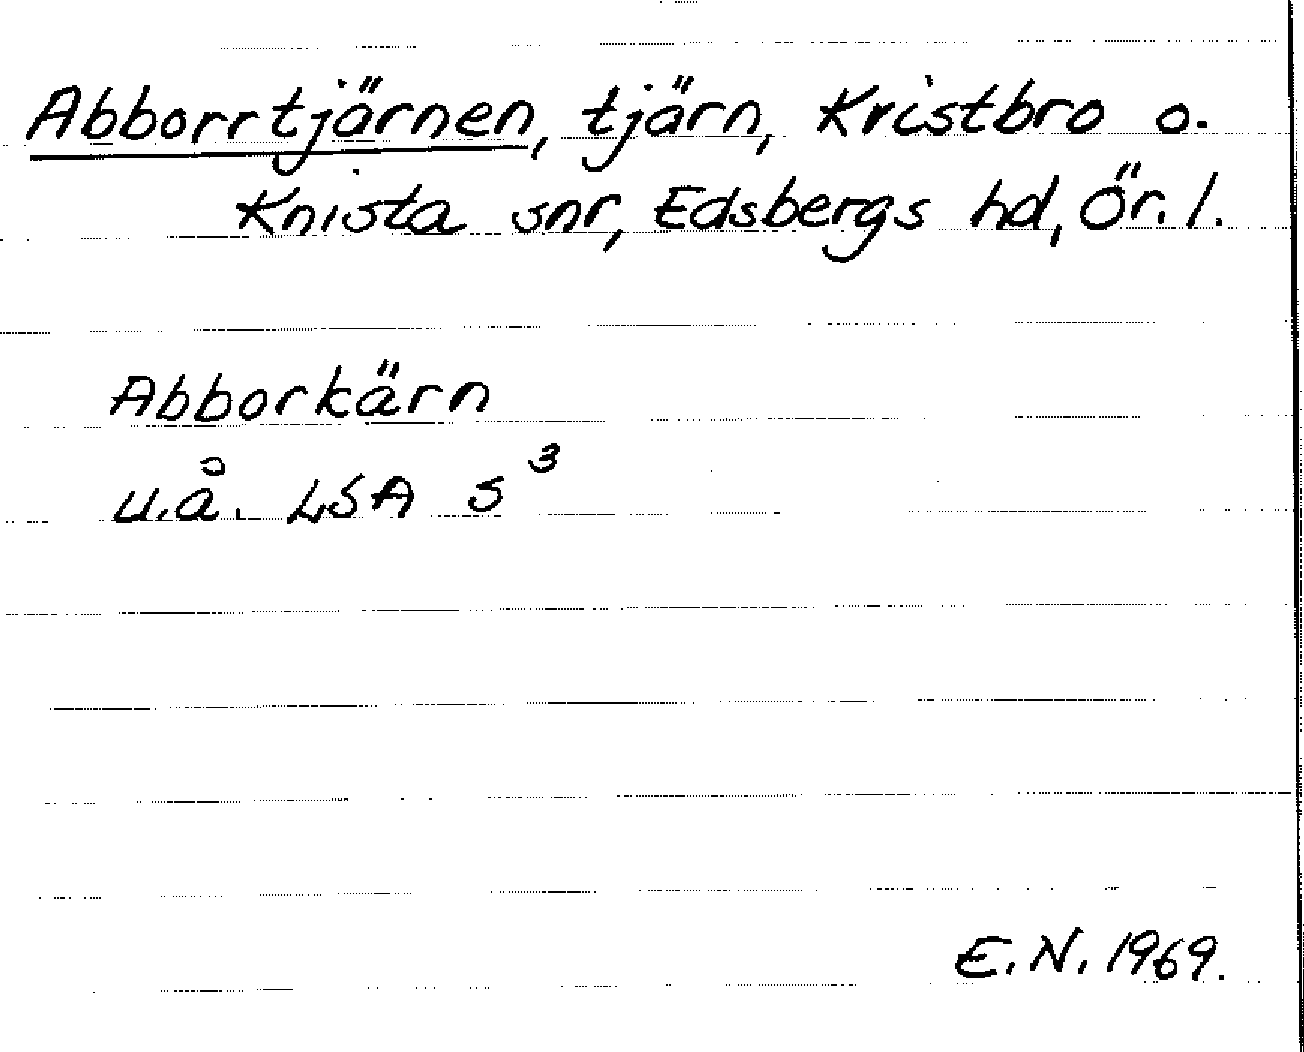 Abborrtjärnen, tjärn, Kristbro o.
Knista snr, Edsbergs hd, Ör. l.
Abborkärn
u.å. LSA S³
E.N. 1969.